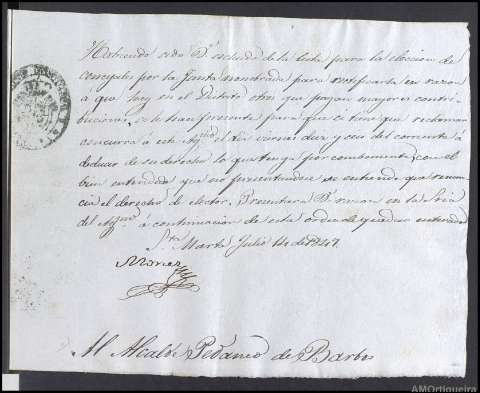 Habiendo sido V. escluido de la lista para la eleccion de
concejales por la Junta nombrada para rectificarla en razon
á que hay en el Distrito otros que pagan mayores contri-
buciones, se le hace presente para que si tiene que reclamar
concurra á este Aytº el dia viernes diez y seis del corriente á
deducir de su derecho lo que tenga por combeniente, con el
bien entendido que no presentandose se entiende que renun-
cia el derecho de elector. Y remitirá V. razon en la Sria
del Aytº á continuacion de esta orden de quedar enterado
Sta Marta Julio 14 de 1847.
Al Alcalde Pedaneo de Barbos
AMOrtigueira